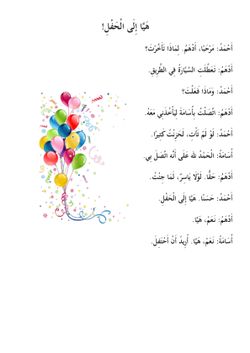 هَيَّا إِلَى الْحَفْلِ!
أَحْمَدُ: مَرْحَبًا، أَدْهَمُ. لِمَاذَا تَأَخَّرْتَ؟
أَدْهَمُ: تَعَطَّلَتِ السَّيَّارَةُ فِي الطَّرِيقِ.
أَحْمَدُ: وَمَاذَا فَعَلْتَ؟
أَدْهَمُ: اتَّصَلْتُ بِأُسَامَةَ لِيَأْخُذَنِي مَعَهُ.
أَحْمَدُ: لَوْ لَمْ تَأْتِ، لَحَزِنْتُ كَثِيرًا.
أُسَامَةُ: الْحَمْدُ لله عَلَى أَنَّه اتَّصَلَ بِي.
أَدْهَمُ: حَقًّا. لَوْلَا يَاسِرٌ، لَمَا جِئْتُ.
أَحْمَدُ: حَسَنًا. هَيَّا إِلَى الْحَفْلِ.
أَدْهَمُ: نَعَمْ، هَيَّا.
أُسَامَةُ: نَعَمْ، هَيَّا. أُرِيدُ أَنْ أَحْتَفِلَ.